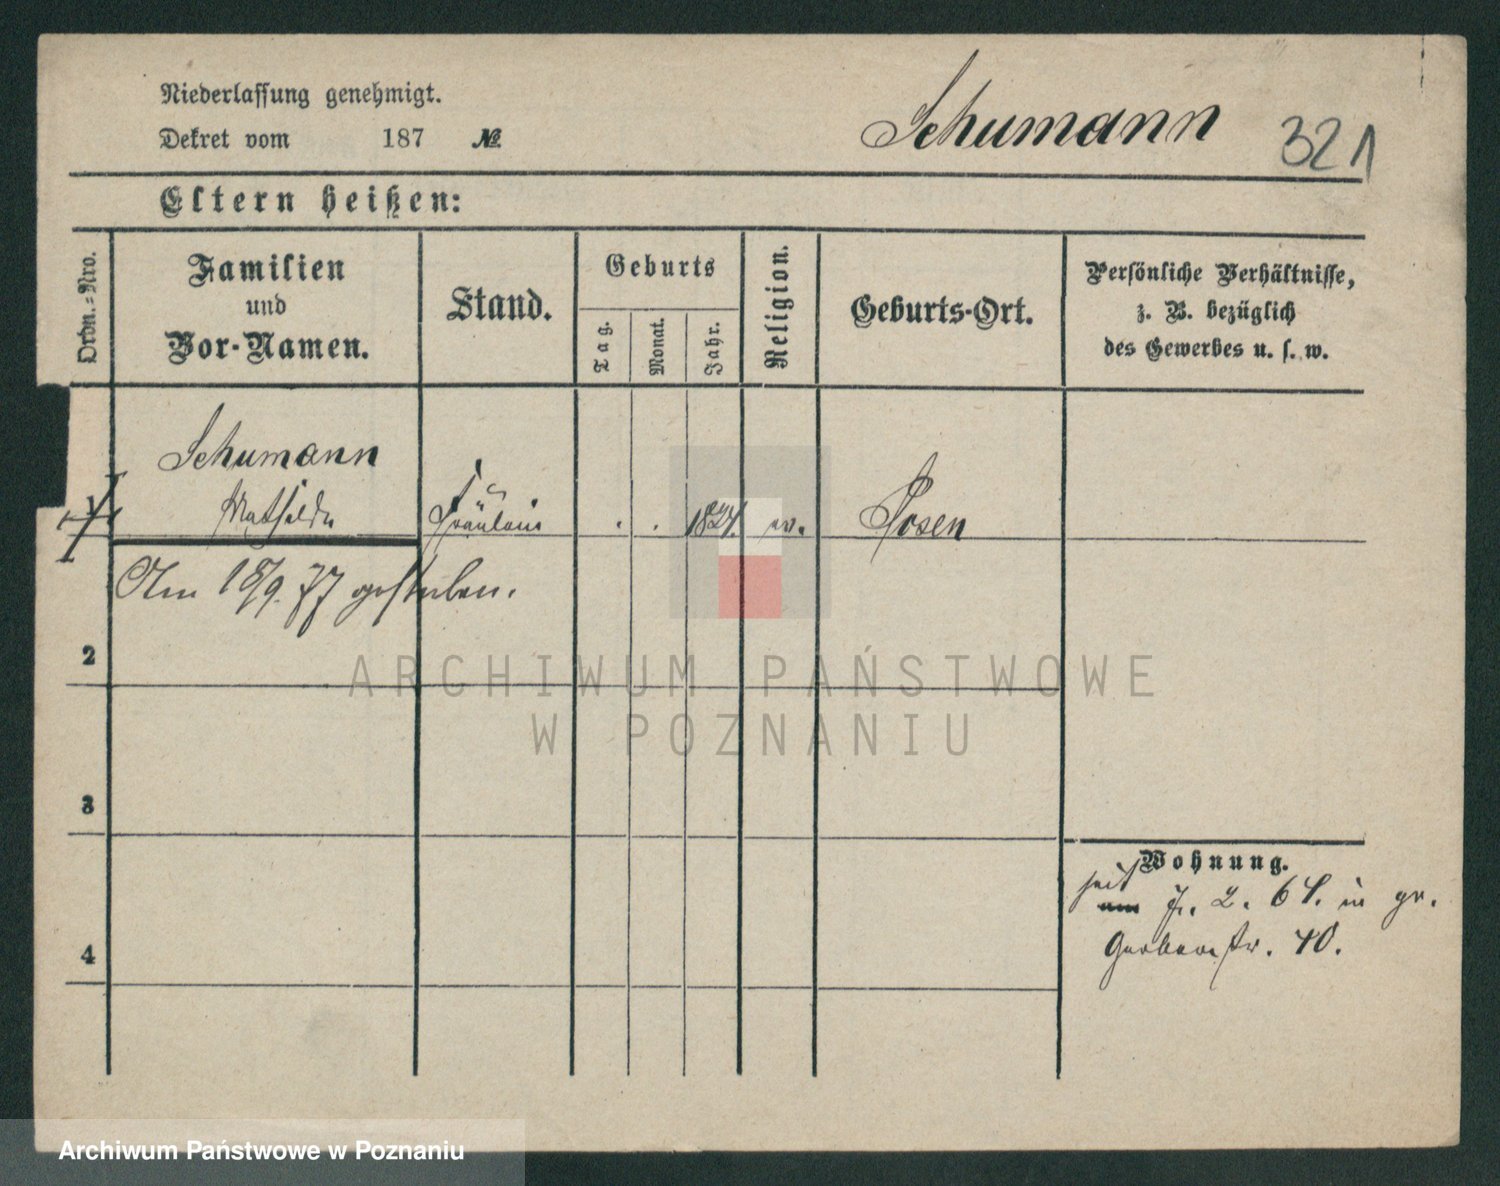 Niederlassung genehmigt.
Dekret vom 187 №
Schumann 321
Eltern heißen:
Ordn.-Nro.
Familien
und
Vor-Namen.
Stand.
Geburts
Tag.
Monat.
Jahr.
Religion.
Geburts-Ort.
Persönliche Verhältnisse,
z. B. bezüglich
des Gewerbes u. s. w.
Schumann
1 Mathilde Fräulein . . 1824. w. Posen
Am 18/9. 77 gestorben.
2
ARCHIWUM PAŃSTWOWE
W POZNANIU
3
Wohnung.
seit
am 2. 64. in gr.
Gerberstr. 40.
4
Archiwum Państwowe w Poznaniu